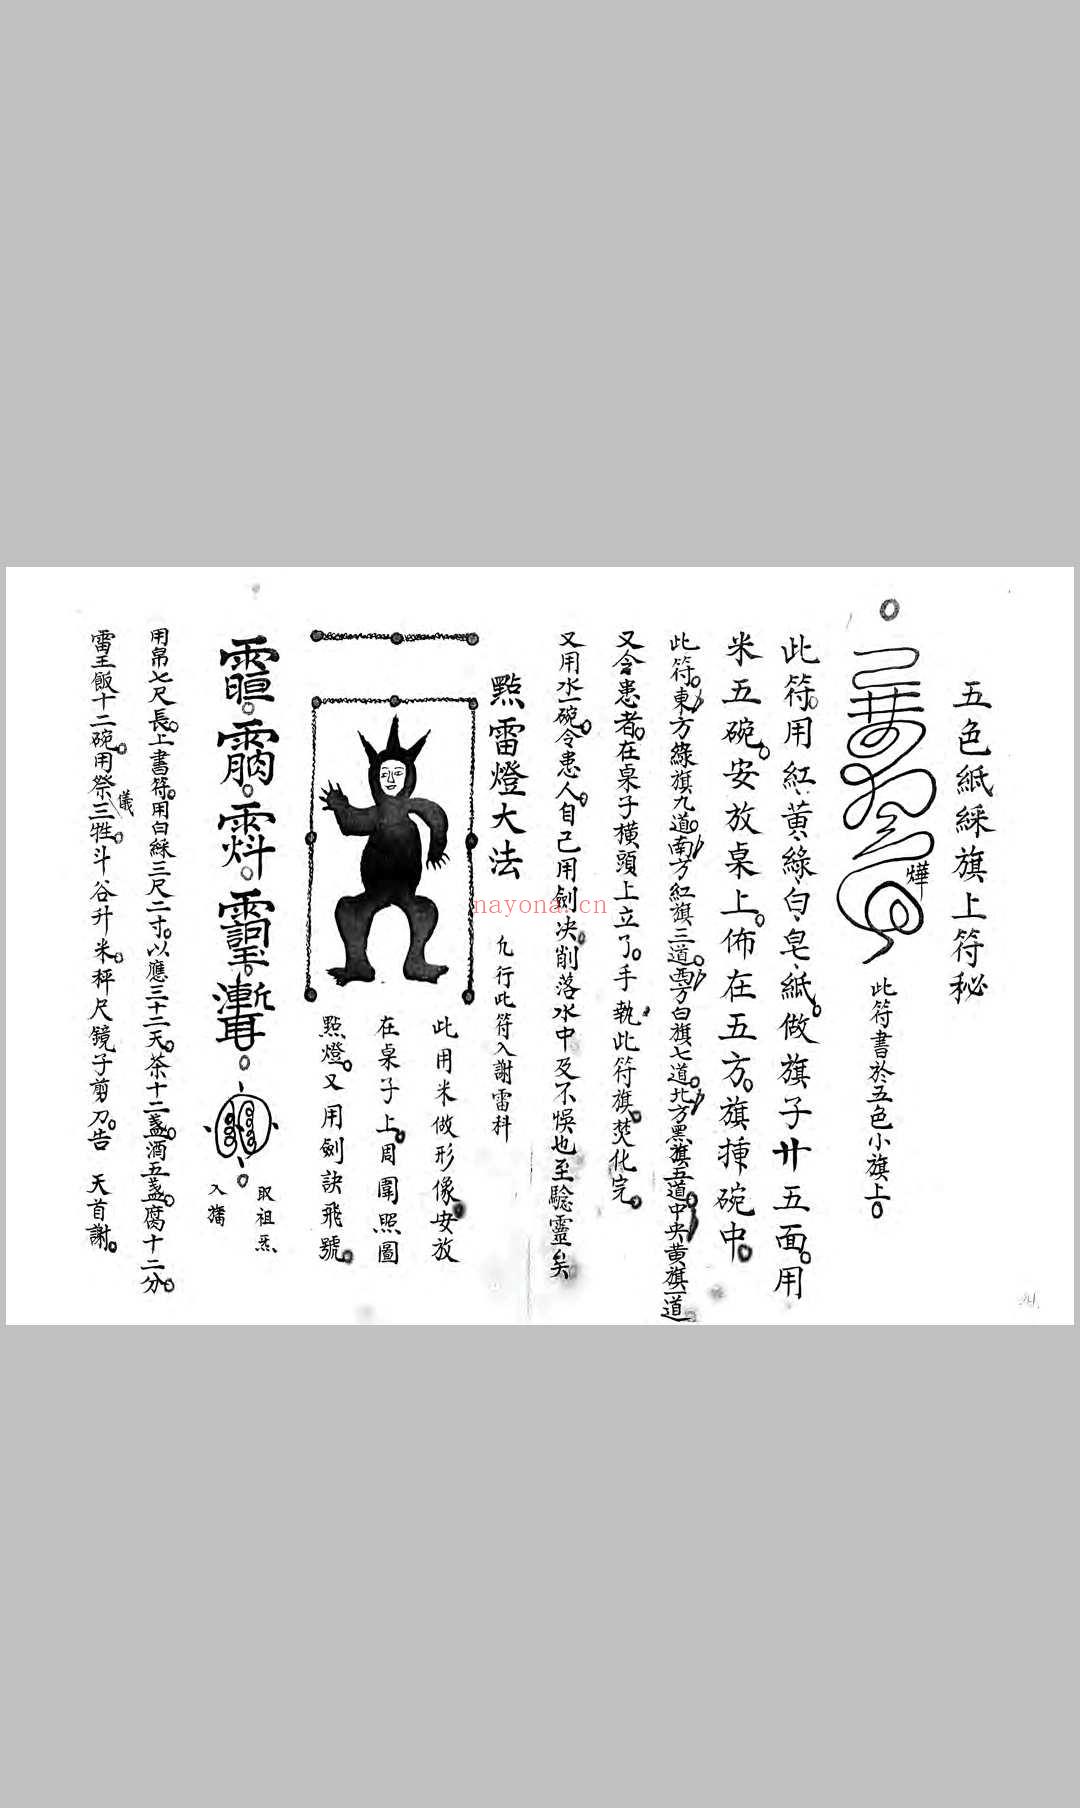 五色紙綵旗上符秘
燁
此符書於五色小旗上
此符用紅黃綠白皂紙做旗子廿五面用
米五碗安放桌上佈在五方旗揷碗中
此符東方綠旗九道南方紅旗三道西方白旗七道北方黑旗五道中央黃旗一道
又令患者在桌子橫頭上立了手執此符旗焚化完
又用水一碗令患人自己用劍决削落水中及不悞也至騐靈矣
點雷燈大法
凢行此符入謝雷科
此用米做形像安放
在桌子上周圍照圖
點燈又用劍訣飛號
取祖炁
入籓
用帛七尺長上書符用白綵三尺二寸以應三十二天茶十二盞酒五盞腐十二分
雷王飯十二碗用祭儀三牲斗谷升米秤尺鏡子剪刀告 天首謝
nayona.cn